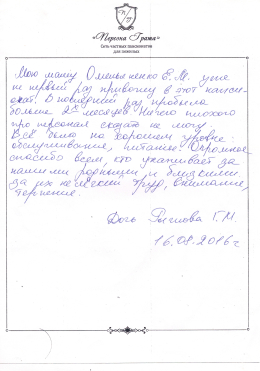 «Персона Грата»
Сеть частных пансионатов
для пожилых
Мою маму Омельяненко Е.М. уже
не первый раз привожу в этот пансио-
нат. В последний раз пробыла
больше 2х месяцев. Ничего плохого
про персонал сказать не могу.
Всё было на хорошем уровне:
обслуживание, питание. Огромное
спасибо всем, кто ухаживает за
нашими родными и близкими
за их нелёгкий труд, внимание,
терпение.
Дочь Г.М.
16.08.2016г